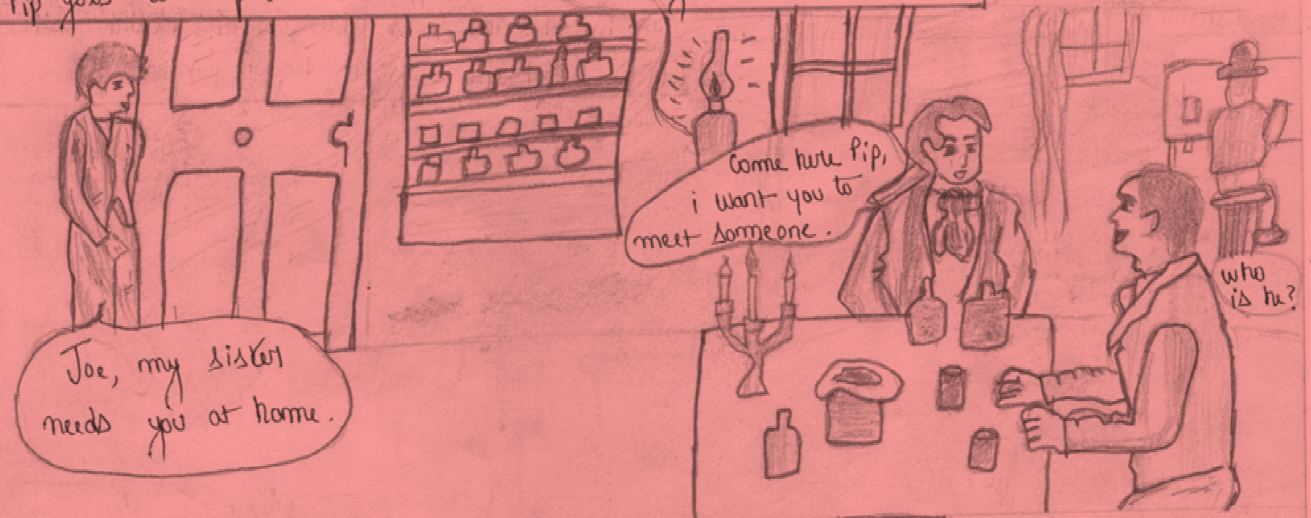 Pip goes
Joe, my sister
needs you at home.
Come here Pip,
i want you to
meet someone.
who
is he?